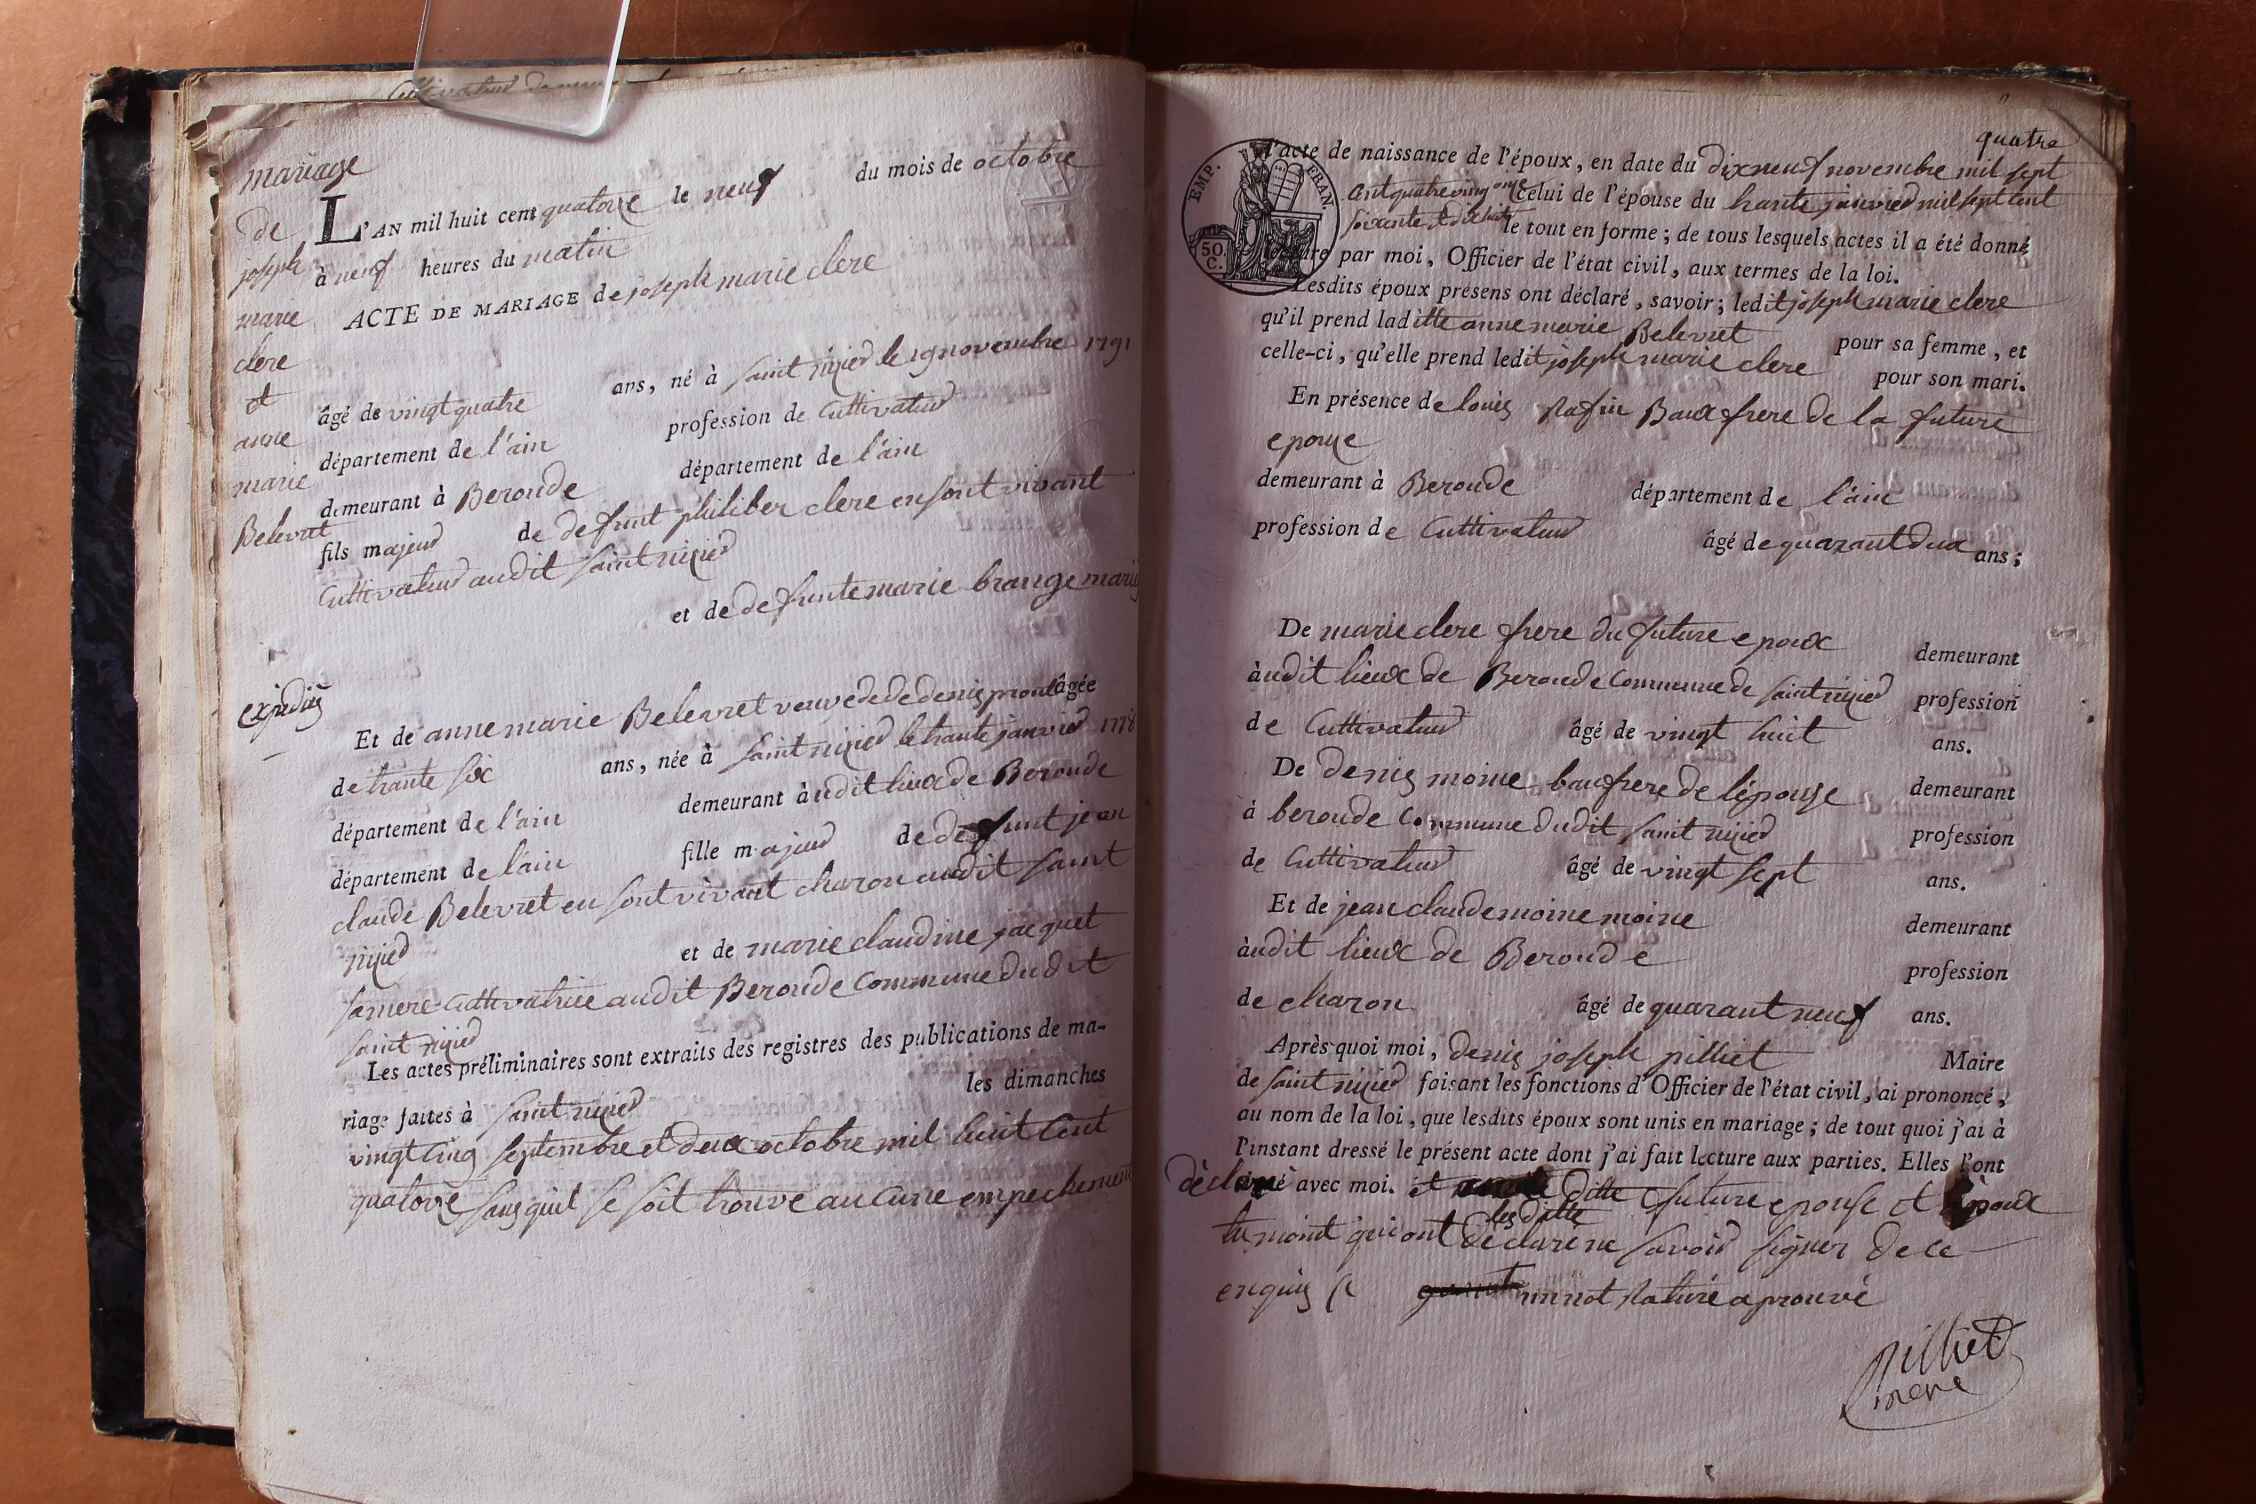 mariage
de
joseph
marie
clere
et
anne
marie
Belevret
expediés
L'AN mil huit cent quatorze le neuf du mois de octobre
à neuf heures du matin
ACTE DE MARIAGE de joseph marie clere
âgé de vingt quatre ans, né à saint nizier le 19 novembre 1791
département de l'ain profession de Cultivateur
demeurant à Beroude département de l'ain
fils majeur de defunt philiber clere en sont vivant
Cultivateur audit saint nizier
et de defunte marie brange marie
Et de anne marie Belevret veuve de de denis prout âgée
de trante six ans, née à saint nizier le trante janvier 1778
département de l'ain demeurant audit lieux de Beroude
département de l'ain fille majeur de defunt jean
claude Belevret en sont vivant charon audit saint
nizier et de marie claudine jacquet
sa mere Cultivatrice audit Beroude Commune dudit
saint nizier
Les actes préliminaires sont extraits des registres des publications de ma-
riage faites à saint nizier les dimanches
vingt Cinq septembre et deux octobre mil huit Cent
quatorze sans quil se soit trouve aucune empechement
quatre
EMP. FRAN.
50 C.
l'acte de naissance de l'époux, en date du dix neuf novembre mil sept
Cent quatre ving onze Celui de l'épouse du trante janvier mil sept Cent
soixante et dix huit le tout en forme ; de tous lesquels actes il a été donné
lecture par moi, Officier de l'état civil, aux termes de la loi.
Lesdits époux presens ont déclaré, savoir ; ledit joseph marie clere
qu'il prend laditte anne marie Belevret pour sa femme, et
celle-ci, qu'elle prend ledit joseph marie clere pour son mari.
En présence de louis Rafin Baux frere de la future
epouse
demeurant à Beroude département de l'ain
profession de Cultivateur âgé de quarant dux ans ;
De marie clere frere du future epoux demeurant
àudit lieux de Beroude Commune de saint nizier profession
de Cultivateur âgé de vingt huit ans.
De denis moine baux frere de l'épouse demeurant
à beroude Commune dudit saint nizier profession
de Cultivateur âgé de vingt sept ans.
Et de jean claude moine moine demeurant
àudit lieux de Beroude profession
de charon âgé de quarant neuf ans.
Après quoi moi, denis joseph pilliet Maire
de saint nizier faisant les fonctions d'Officier de l'état civil, ai prononcé,
au nom de la loi, que lesdits époux sont unis en mariage ; de tout quoi j'ai à
l'instant dressé le présent acte dont j'ai fait lecture aux parties. Elles l'ont
déclaré avec moi. et ditte future epouse et époux
les ditte
temoint qui ont déclare ne savoir signer de ce
enquis un mot Raturé aprouvé
pilliet
mere